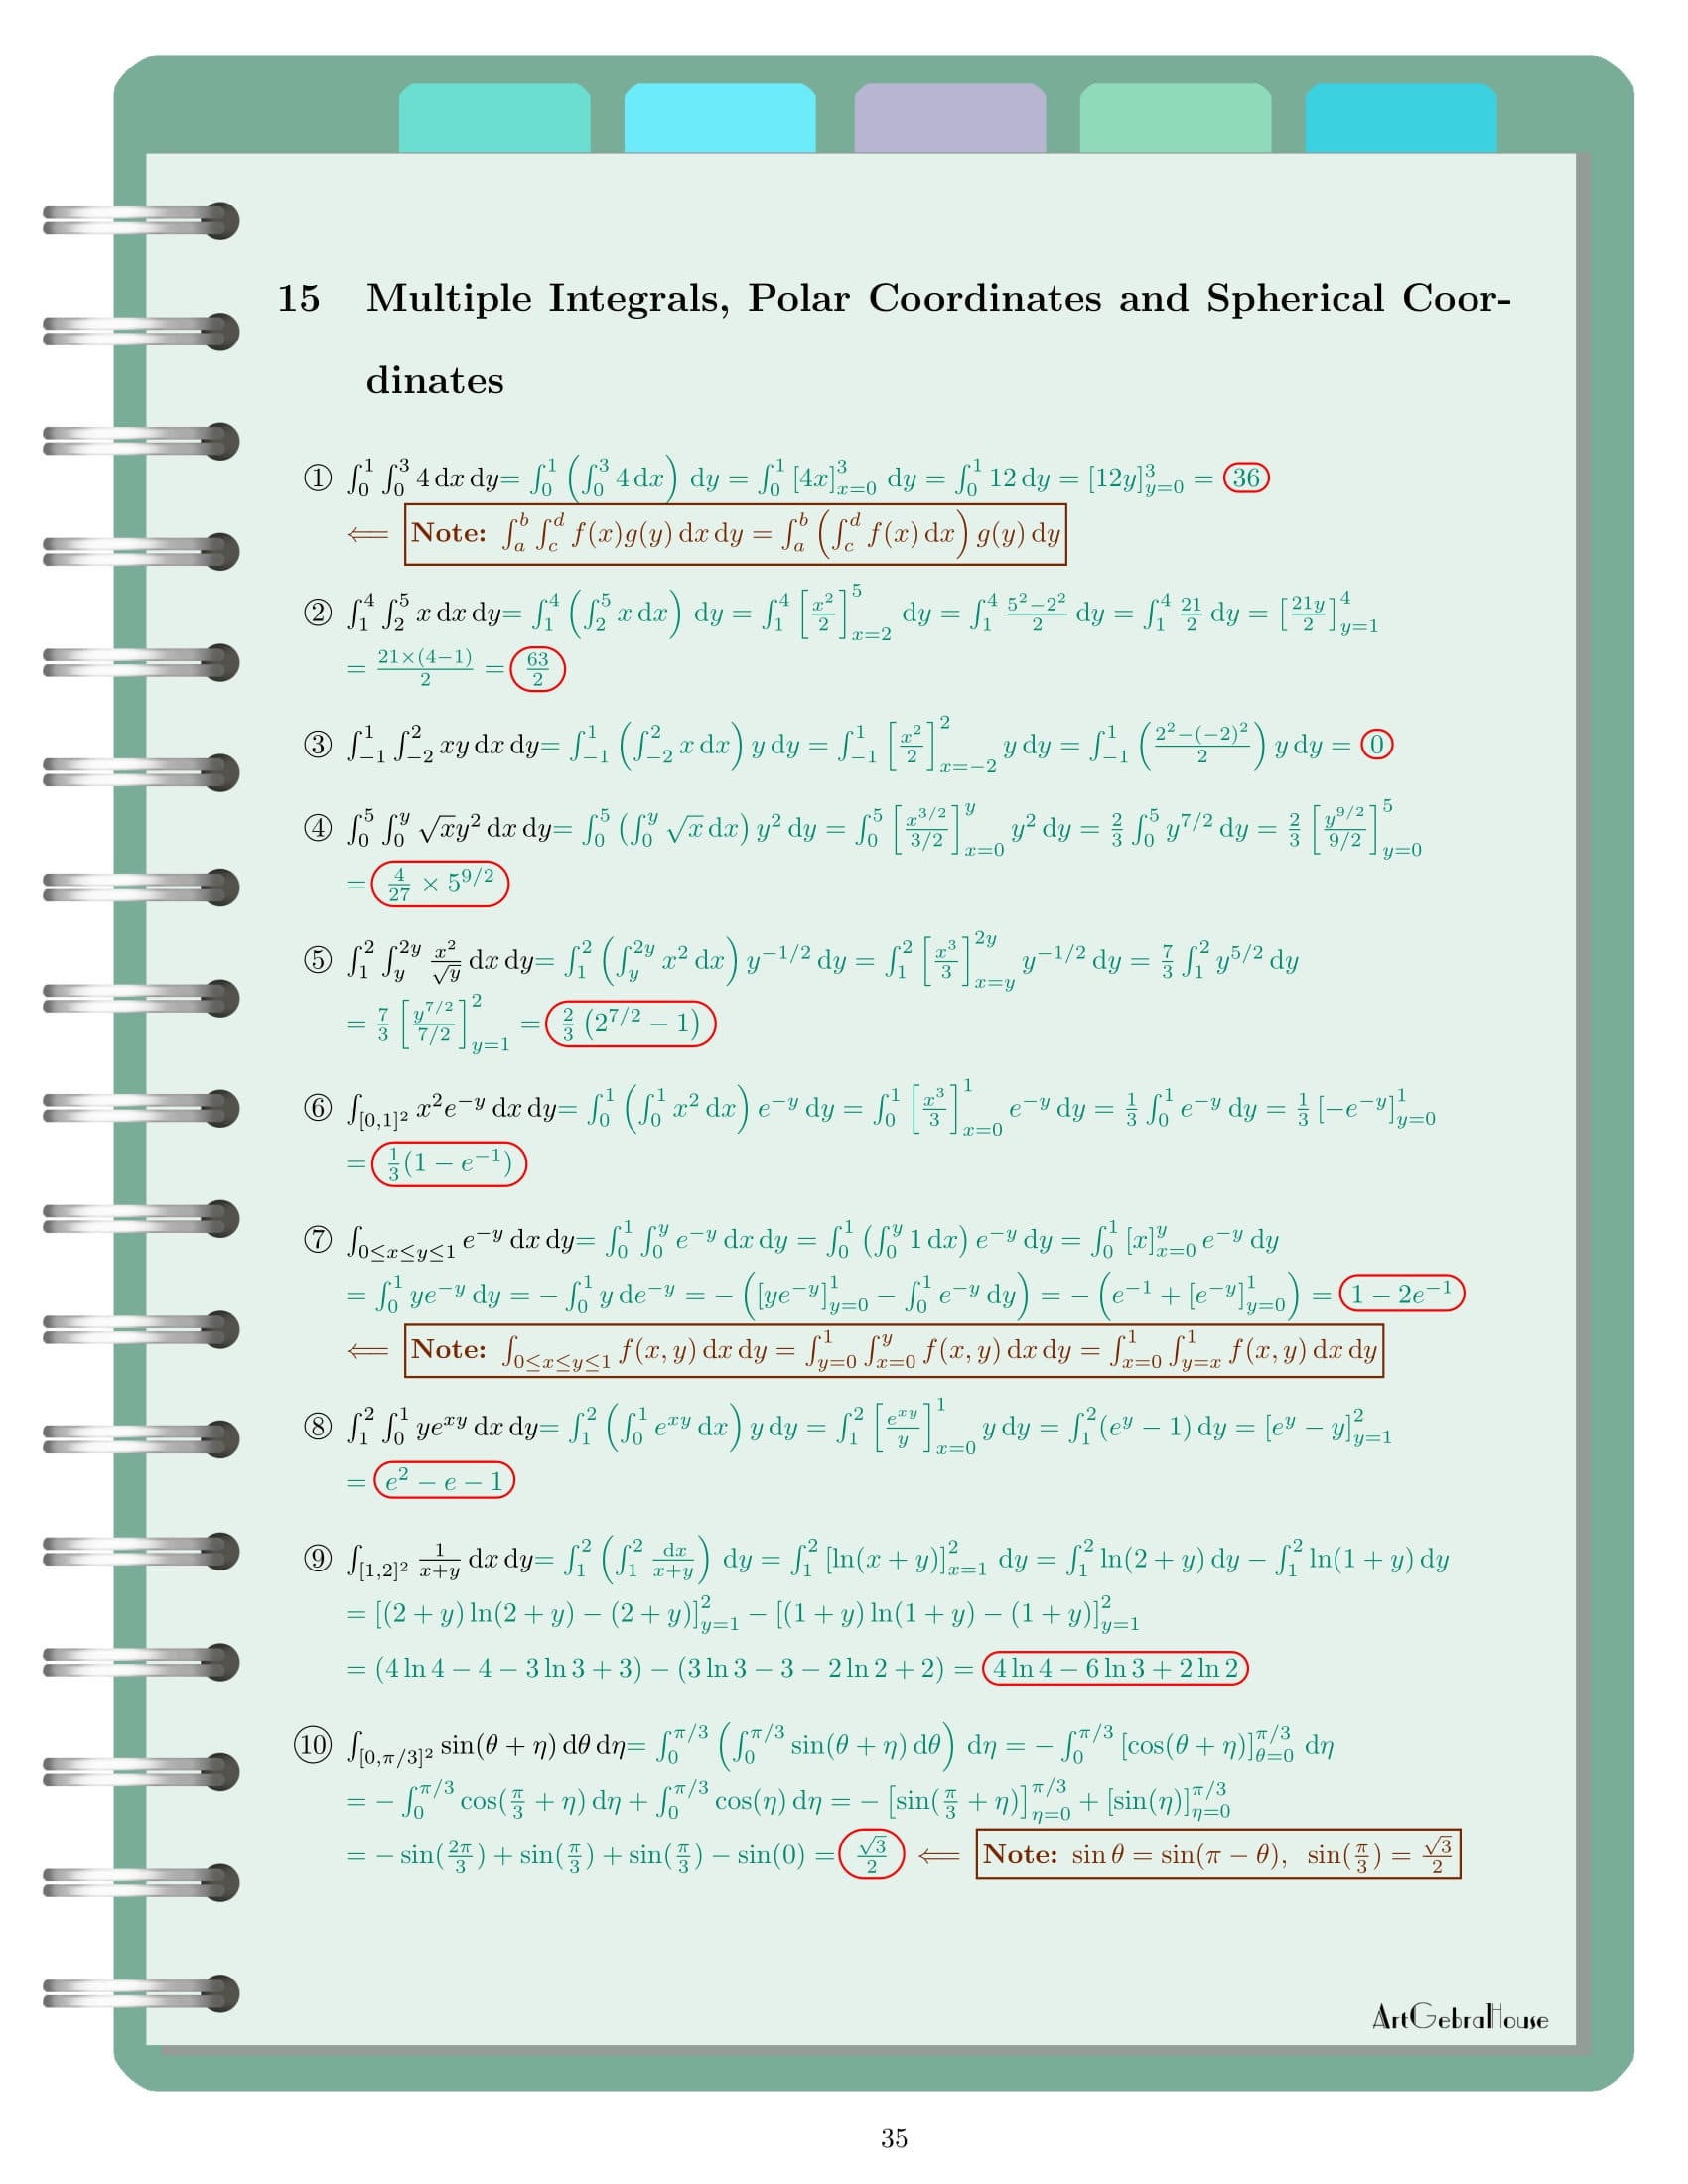 15 Multiple Integrals, Polar Coordinates and Spherical Coor-
dinates
① ∫_0^1 ∫_0^3 4 dx dy= ∫_0^1 (∫_0^3 4 dx) dy = ∫_0^1 [4x]_{x=0}^3 dy = ∫_0^1 12 dy = [12y]_{y=0}^3 = 36
⟸ Note: ∫_a^b ∫_c^d f(x)g(y) dx dy = ∫_a^b (∫_c^d f(x) dx) g(y) dy
② ∫_1^4 ∫_2^5 x dx dy= ∫_1^4 (∫_2^5 x dx) dy = ∫_1^4 [x^2/2]_{x=2}^5 dy = ∫_1^4 (5^2−2^2)/2 dy = ∫_1^4 21/2 dy = [21y/2]_{y=1}^4
= (21×(4−1))/2 = 63/2
③ ∫_{−1}^1 ∫_{−2}^2 xy dx dy= ∫_{−1}^1 (∫_{−2}^2 x dx) y dy = ∫_{−1}^1 [x^2/2]_{x=−2}^2 y dy = ∫_{−1}^1 ((2^2−(−2)^2)/2) y dy = 0
④ ∫_0^5 ∫_0^y √x y^2 dx dy= ∫_0^5 (∫_0^y √x dx) y^2 dy = ∫_0^5 [x^{3/2}/(3/2)]_{x=0}^y y^2 dy = 2/3 ∫_0^5 y^{7/2} dy = 2/3 [y^{9/2}/(9/2)]_{y=0}^5
= 4/27 × 5^{9/2}
⑤ ∫_1^2 ∫_y^{2y} x^2/√y dx dy= ∫_1^2 (∫_y^{2y} x^2 dx) y^{−1/2} dy = ∫_1^2 [x^3/3]_{x=y}^{2y} y^{−1/2} dy = 7/3 ∫_1^2 y^{5/2} dy
= 7/3 [y^{7/2}/(7/2)]_{y=1}^2 = 2/3 (2^{7/2} − 1)
⑥ ∫_{[0,1]^2} x^2 e^{−y} dx dy= ∫_0^1 (∫_0^1 x^2 dx) e^{−y} dy = ∫_0^1 [x^3/3]_{x=0}^1 e^{−y} dy = 1/3 ∫_0^1 e^{−y} dy = 1/3 [−e^{−y}]_{y=0}^1
= 1/3(1 − e^{−1})
⑦ ∫_{0≤x≤y≤1} e^{−y} dx dy= ∫_0^1 ∫_0^y e^{−y} dx dy = ∫_0^1 (∫_0^y 1 dx) e^{−y} dy = ∫_0^1 [x]_{x=0}^y e^{−y} dy
= ∫_0^1 ye^{−y} dy = − ∫_0^1 y de^{−y} = − ([ye^{−y}]_{y=0}^1 − ∫_0^1 e^{−y} dy) = − (e^{−1} + [e^{−y}]_{y=0}^1) = 1 − 2e^{−1}
⟸ Note: ∫_{0≤x≤y≤1} f(x, y) dx dy = ∫_{y=0}^1 ∫_{x=0}^y f(x, y) dx dy = ∫_{x=0}^1 ∫_{y=x}^1 f(x, y) dx dy
⑧ ∫_1^2 ∫_0^1 ye^{xy} dx dy= ∫_1^2 (∫_0^1 e^{xy} dx) y dy = ∫_1^2 [e^{xy}/y]_{x=0}^1 y dy = ∫_1^2 (e^y − 1) dy = [e^y − y]_{y=1}^2
= e^2 − e − 1
⑨ ∫_{[1,2]^2} 1/(x+y) dx dy= ∫_1^2 (∫_1^2 dx/(x+y)) dy = ∫_1^2 [ln(x + y)]_{x=1}^2 dy = ∫_1^2 ln(2 + y) dy − ∫_1^2 ln(1 + y) dy
= [(2 + y) ln(2 + y) − (2 + y)]_{y=1}^2 − [(1 + y) ln(1 + y) − (1 + y)]_{y=1}^2
= (4 ln 4 − 4 − 3 ln 3 + 3) − (3 ln 3 − 3 − 2 ln 2 + 2) = 4 ln 4 − 6 ln 3 + 2 ln 2
⑩ ∫_{[0,π/3]^2} sin(θ + η) dθ dη= ∫_0^{π/3} (∫_0^{π/3} sin(θ + η) dθ) dη = − ∫_0^{π/3} [cos(θ + η)]_{θ=0}^{π/3} dη
= − ∫_0^{π/3} cos(π/3 + η) dη + ∫_0^{π/3} cos(η) dη = − [sin(π/3 + η)]_{η=0}^{π/3} + [sin(η)]_{η=0}^{π/3}
= − sin(2π/3) + sin(π/3) + sin(π/3) − sin(0) = √3/2 ⟸ Note: sin θ = sin(π − θ), sin(π/3) = √3/2
ArtGebraHouse
35